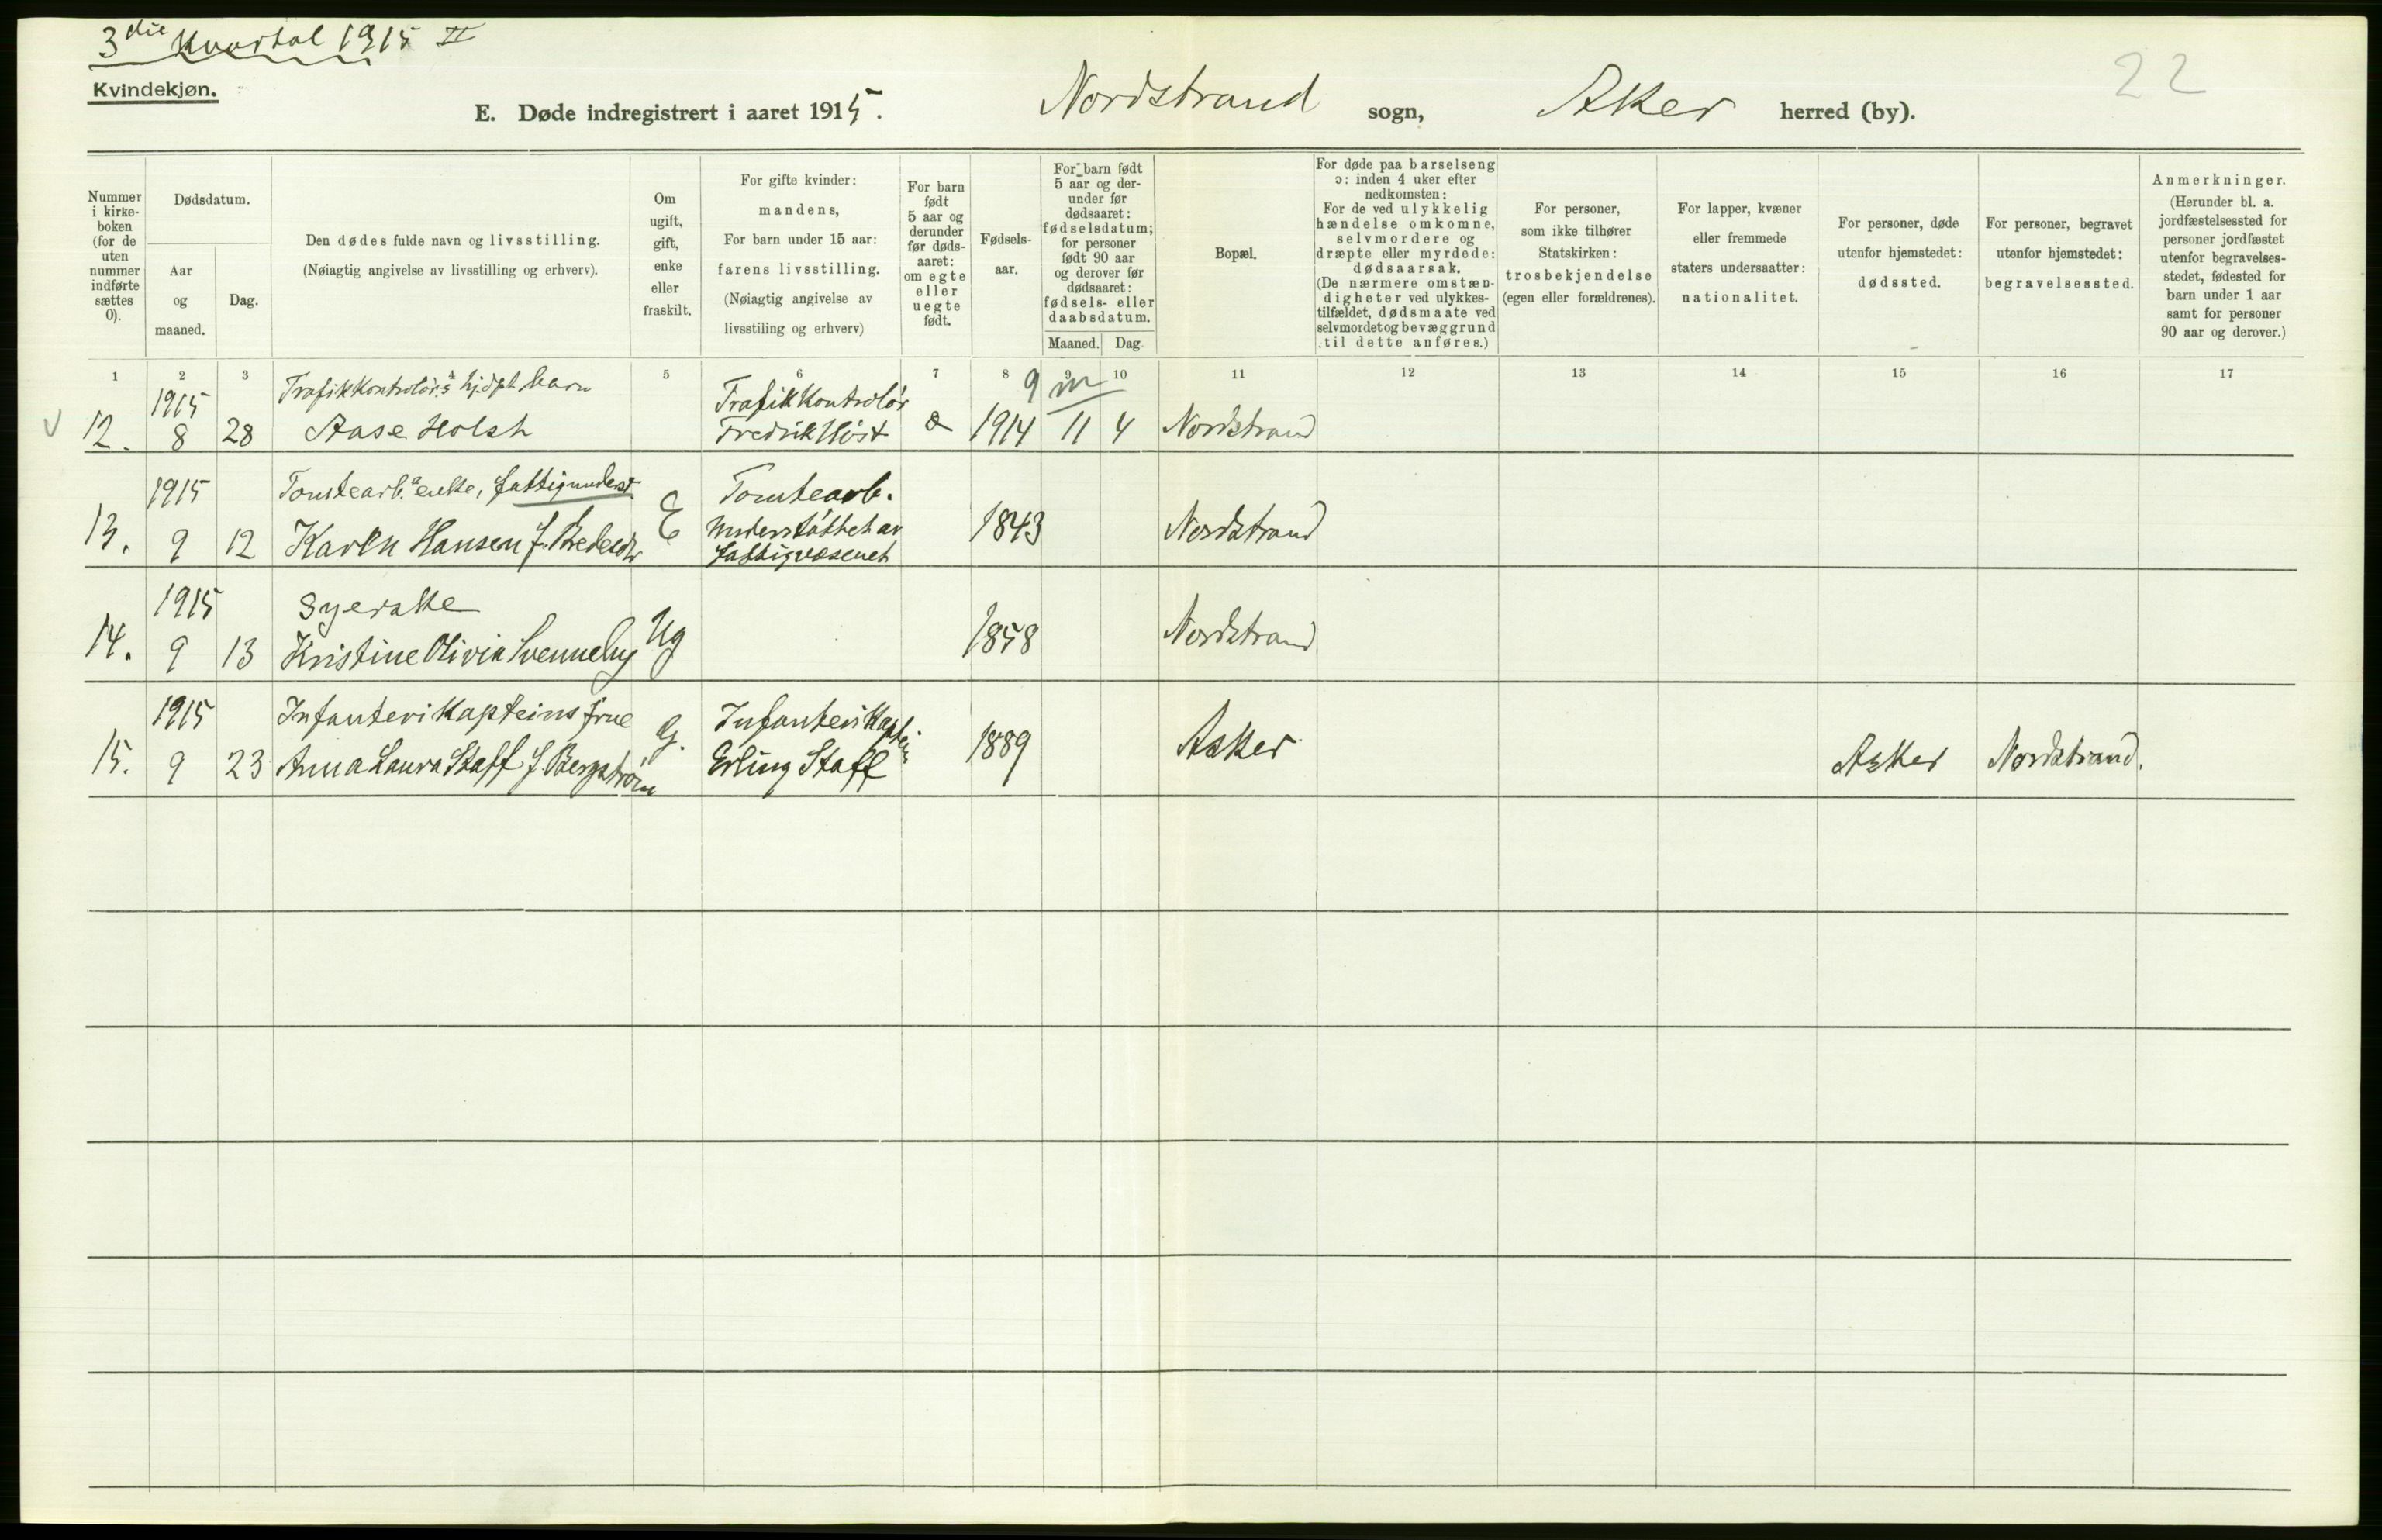 3die Kvartal 1915 II
22
Kvindekjøn.
E. Døde indregistrert i aaret 1915. Nordstrand sogn, Aker herred (by).
Nummer i kirke- boken (for de uten nummer indførte sættes 0).
Dødsdatum.
Aar og maaned.
Dag.
Den dødes fulde navn og livsstilling.
(Nøiagtig angivelse av livsstilling og erhverv).
Om ugift, gift, enke eller fraskilt.
For gifte kvinder:
mandens,
For barn under 15 aar:
farens livsstilling.
(Nøiagtig angivelse av
livsstiling og erhverv)
For barn født 5 aar og derunder før døds- aaret: om egte eller uegte født.
Fødsels- aar.
For barn født 5 aar og der- under før dødsaaret: fødselsdatum; for personer født 90 aar og derover før dødsaaret: fødsels- eller daabsdatum.
Maaned. Dag.
Bopæl.
For døde paa barselseng
ɔ: inden 4 uker efter
nedkomsten:
For de ved ulykkelig
hændelse omkomne,
selvmordere og
dræpte eller myrdede:
dødsaarsak.
(De nærmere omstæn-
digheter ved ulykkes-
tilfældet, dødsmaate ved
selvmordet og bevæggrund
til dette anføres.)
For personer,
som ikke tilhører
Statskirken:
trosbekjendelse
(egen eller forældrenes).
For lapper, kvæner
eller fremmede
staters undersaatter:
nationalitet.
For personer, døde
utenfor hjemstedet:
dødssted.
For personer, begravet
utenfor hjemstedet:
begravelsessted.
Anmerkninger.
(Herunder bl. a.
jordfæstelsessted for
personer jordfæstet
utenfor begravelses-
stedet, fødested for
barn under 1 aar
samt for personer
90 aar og derover.)
1 2 3 4 5 6 7 8 9 10 11 12 13 14 15 16 17
1915 Trafikkontrolørs hj.dpt barn Trafikkontrolør 9 m
12. 8 28 Aase Holst Fredrik Høst 1914 11 4 Nordstrand
1915 Tomtearb. enke, fattigunderst. E Tomtearb.
13. 9 12 Karen Hansen f. Understøttet av 1843 Nordstrand
fattigvæsenet
1915 Syerske
14. 9 13 Kristine Olivia Svenneby Ug 1858 Nordstrand
1915 Infanterikapteins frue G. Infanterikaptein
15. 9 23 Anna Laura Staff f. Bergstrøm Erling Staff 1889 Asker Asker Nordstrand.